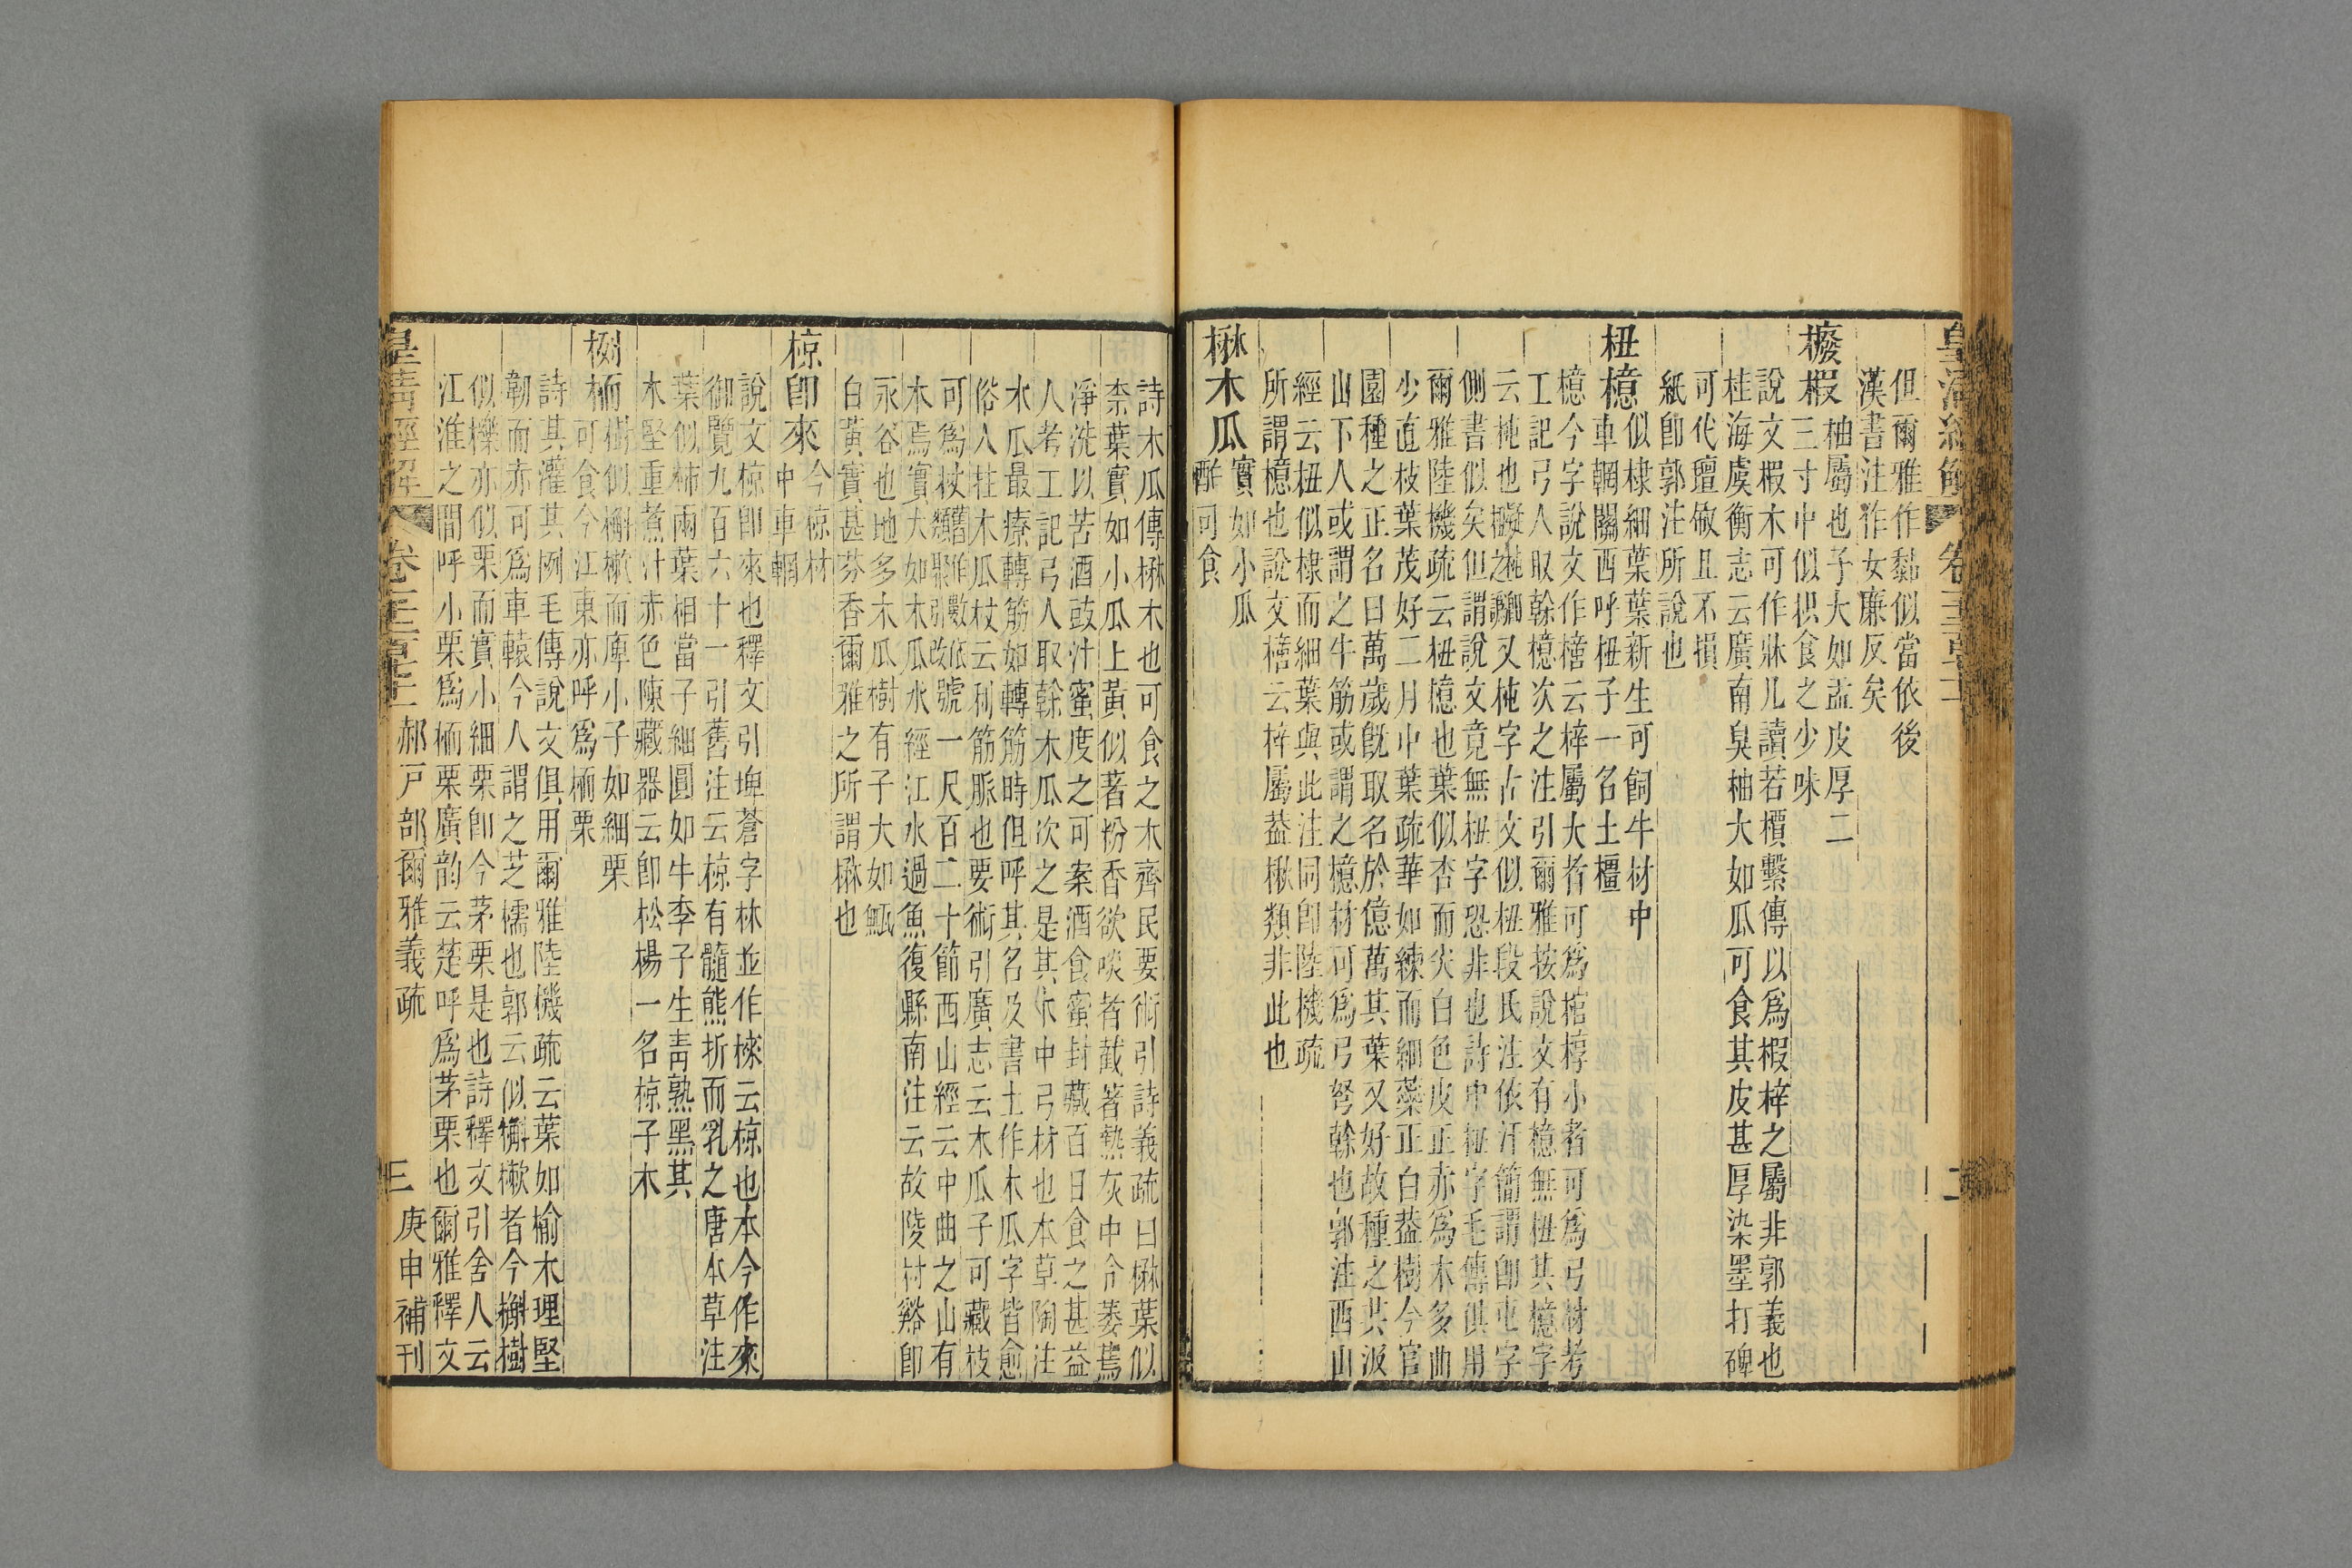 但爾雅作黏似當依後
漢書注作女廉反矣
櫠椵柚屬也子大如盂皮厚二
三寸中似枳食之少味
說文椵木可作牀几讀若櫃繫傳以為椵梓之屬非郭義也
桂海虞衡志云廣南臭柚大如瓜可食其皮甚厚染墨打碑
可代㲲敬且不損
紙卽郭注所說也
杻檍似棣細葉葉新生可飼牛材中
車輞關西呼杻子一名土橿
檍今字說文作㯆云梓屬大者可為棺椁小者可為弓材考
工記弓人取榦檍次之注引爾雅按說文有檍無杻其檍字
云杶也又杶字古文似杻段氏注依汗簡謂卽屯字
側書似矣但謂說文竟無杻字恐非也詩中杻字毛傳俱用
爾雅陸機疏云杻檍也葉似杏而尖白色皮正赤為木多曲
少直枝葉茂好二月中葉疏華如練而細蘂正白蓋樹今官
園種之正名曰萬歲旣取名於億萬其葉又好故種之共汲
山下人或謂之牛筋或謂之檍材可為弓弩榦也郭注西山
經云杻似棣而細葉與此注同卽陸機疏
所謂檍也說文㯆云梓屬葢楸類非此也
楙木瓜實如小瓜
酢可食
詩木瓜傳楙木也可食之木齊民要術引詩義疏曰楙葉似
柰葉實如小瓜上黃似著粉香欲啖者截著熱灰中令萎蔫
淨洗以苦酒豉汁蜜度之可案酒食蜜封藏百日食之甚益
人考工記弓人取榦木瓜次之是其木中弓材也本草陶注
木瓜最療轉筋如轉筋時但呼其名及書土作木瓜字皆愈
俗人拄木瓜杖云利筋脈也要術引廣志云木瓜子可藏枝
可為杖號一尺百二十節西山經云中曲之山有
木焉實大如木瓜水經江水過魚復縣南注云故陵村谿卽
永谷也地多木瓜樹有子大如甒
白黃實甚芬香爾雅之所謂楙也
椋卽來今椋材
中車輞
說文椋卽來也釋文引埤蒼字林並作棶云椋也本今作來
御覽九百六十一引舊注云椋有髓熊折而乳之唐本草注
葉似柿兩葉相當子細圓如牛李子生靑熟黑其
木堅重煮汁赤色陳藏器云卽松楊一名椋子木
栵栭樹似槲樕而庳小子如細栗
可食今江東亦呼為栭栗
詩其灌其栵毛傳說文俱用爾雅陸機疏云葉如榆木理堅
韌而赤可為車轅今人謂之芝檽也郭云似槲樕者今槲樹
似櫟亦似栗而實小細栗卽今茅栗是也詩釋文引舍人云
江淮之間呼小栗為栭栗廣韵云楚呼為茅栗也爾雅釋文
皇清經解 卷 郝戸部爾雅義疏 三 庚申補刊